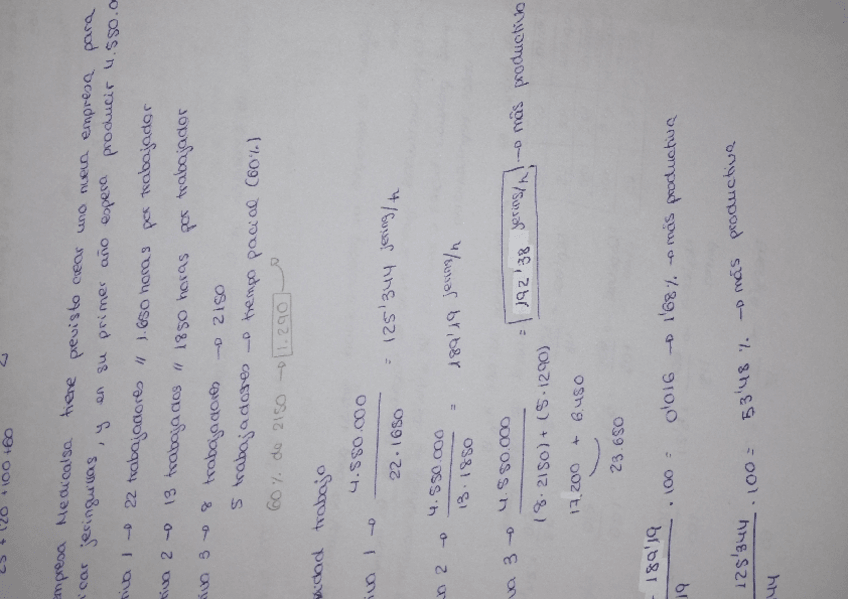 25 + 120 + 100 + 60
mpresa Medicalsa tiene previsto crear una nueva empresa para
icar jeringuillas, y en su primer año espera producir 4.550.0
tiva 1 → 22 trabajadores // 1.650 horas por trabajador
tiva 2 → 13 trabajados // 1850 horas por trabajador
tiva 3 → 8 trabajadores → 2150
5 trabajadores → tiempo pacial (60%)
60% de 2150 → 1.290
vidad trabajo
iva 1 → 4.550.000 / 22.1650 = 125'344 jering/h
a 2 → 4.550.000 / 13.1850 = 189'19 jering/h
va 3 → 4.550.000 / (8.2150) + (5.1290) = 192'38 jering/h → más productivo
17.200 + 6.450
23.650
- 189'19 / 19 . 100 = 0'016 → 1'68% → más productiva
125'344 / 44 . 100 = 53'48 % → más productiva